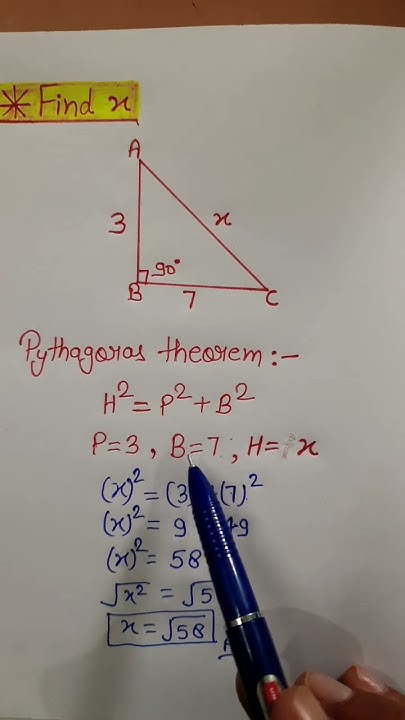 * Find x
A
3 x
90°
B 7 C
Pythagoras theorem :-
H² = P² + B²
P = 3 , B = 7 ; H = x
(x)² = (3) (7)²
(x)² = 9 49
(x)² = 58
√x² = √5
x = √58